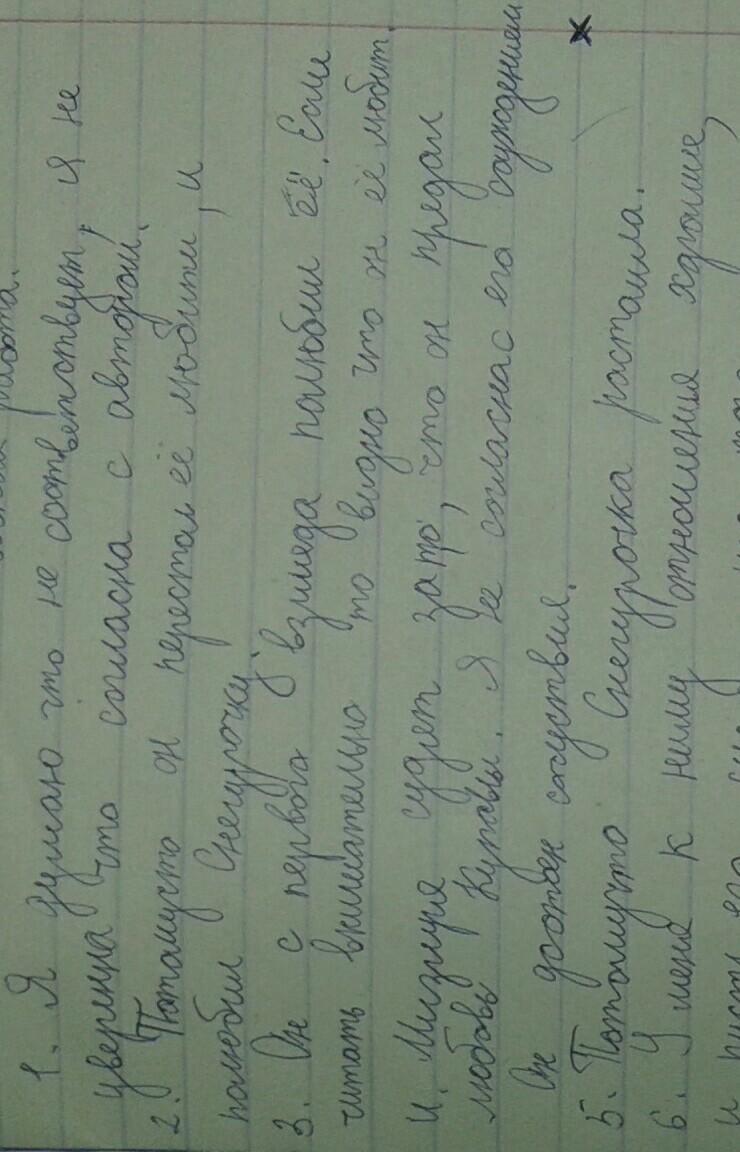 работа.
1. Я думаю что не соответствует, я не
уверенна что согласна с автором.
2. Потамучто он перестал её любить, и
полюбил Снегурочку
3. Он с первого взгляда полюбил её. Если
читать внимательно то видно что он её любит.
4. Мизгиря судят за то, что он предал
любовь Купавы. Я не согласна с его суждением
Он достоен сочуствия.
5. Потомучто Снегурочка ростаила.
6. У меня к нему отношения хорошие,
и пусть его